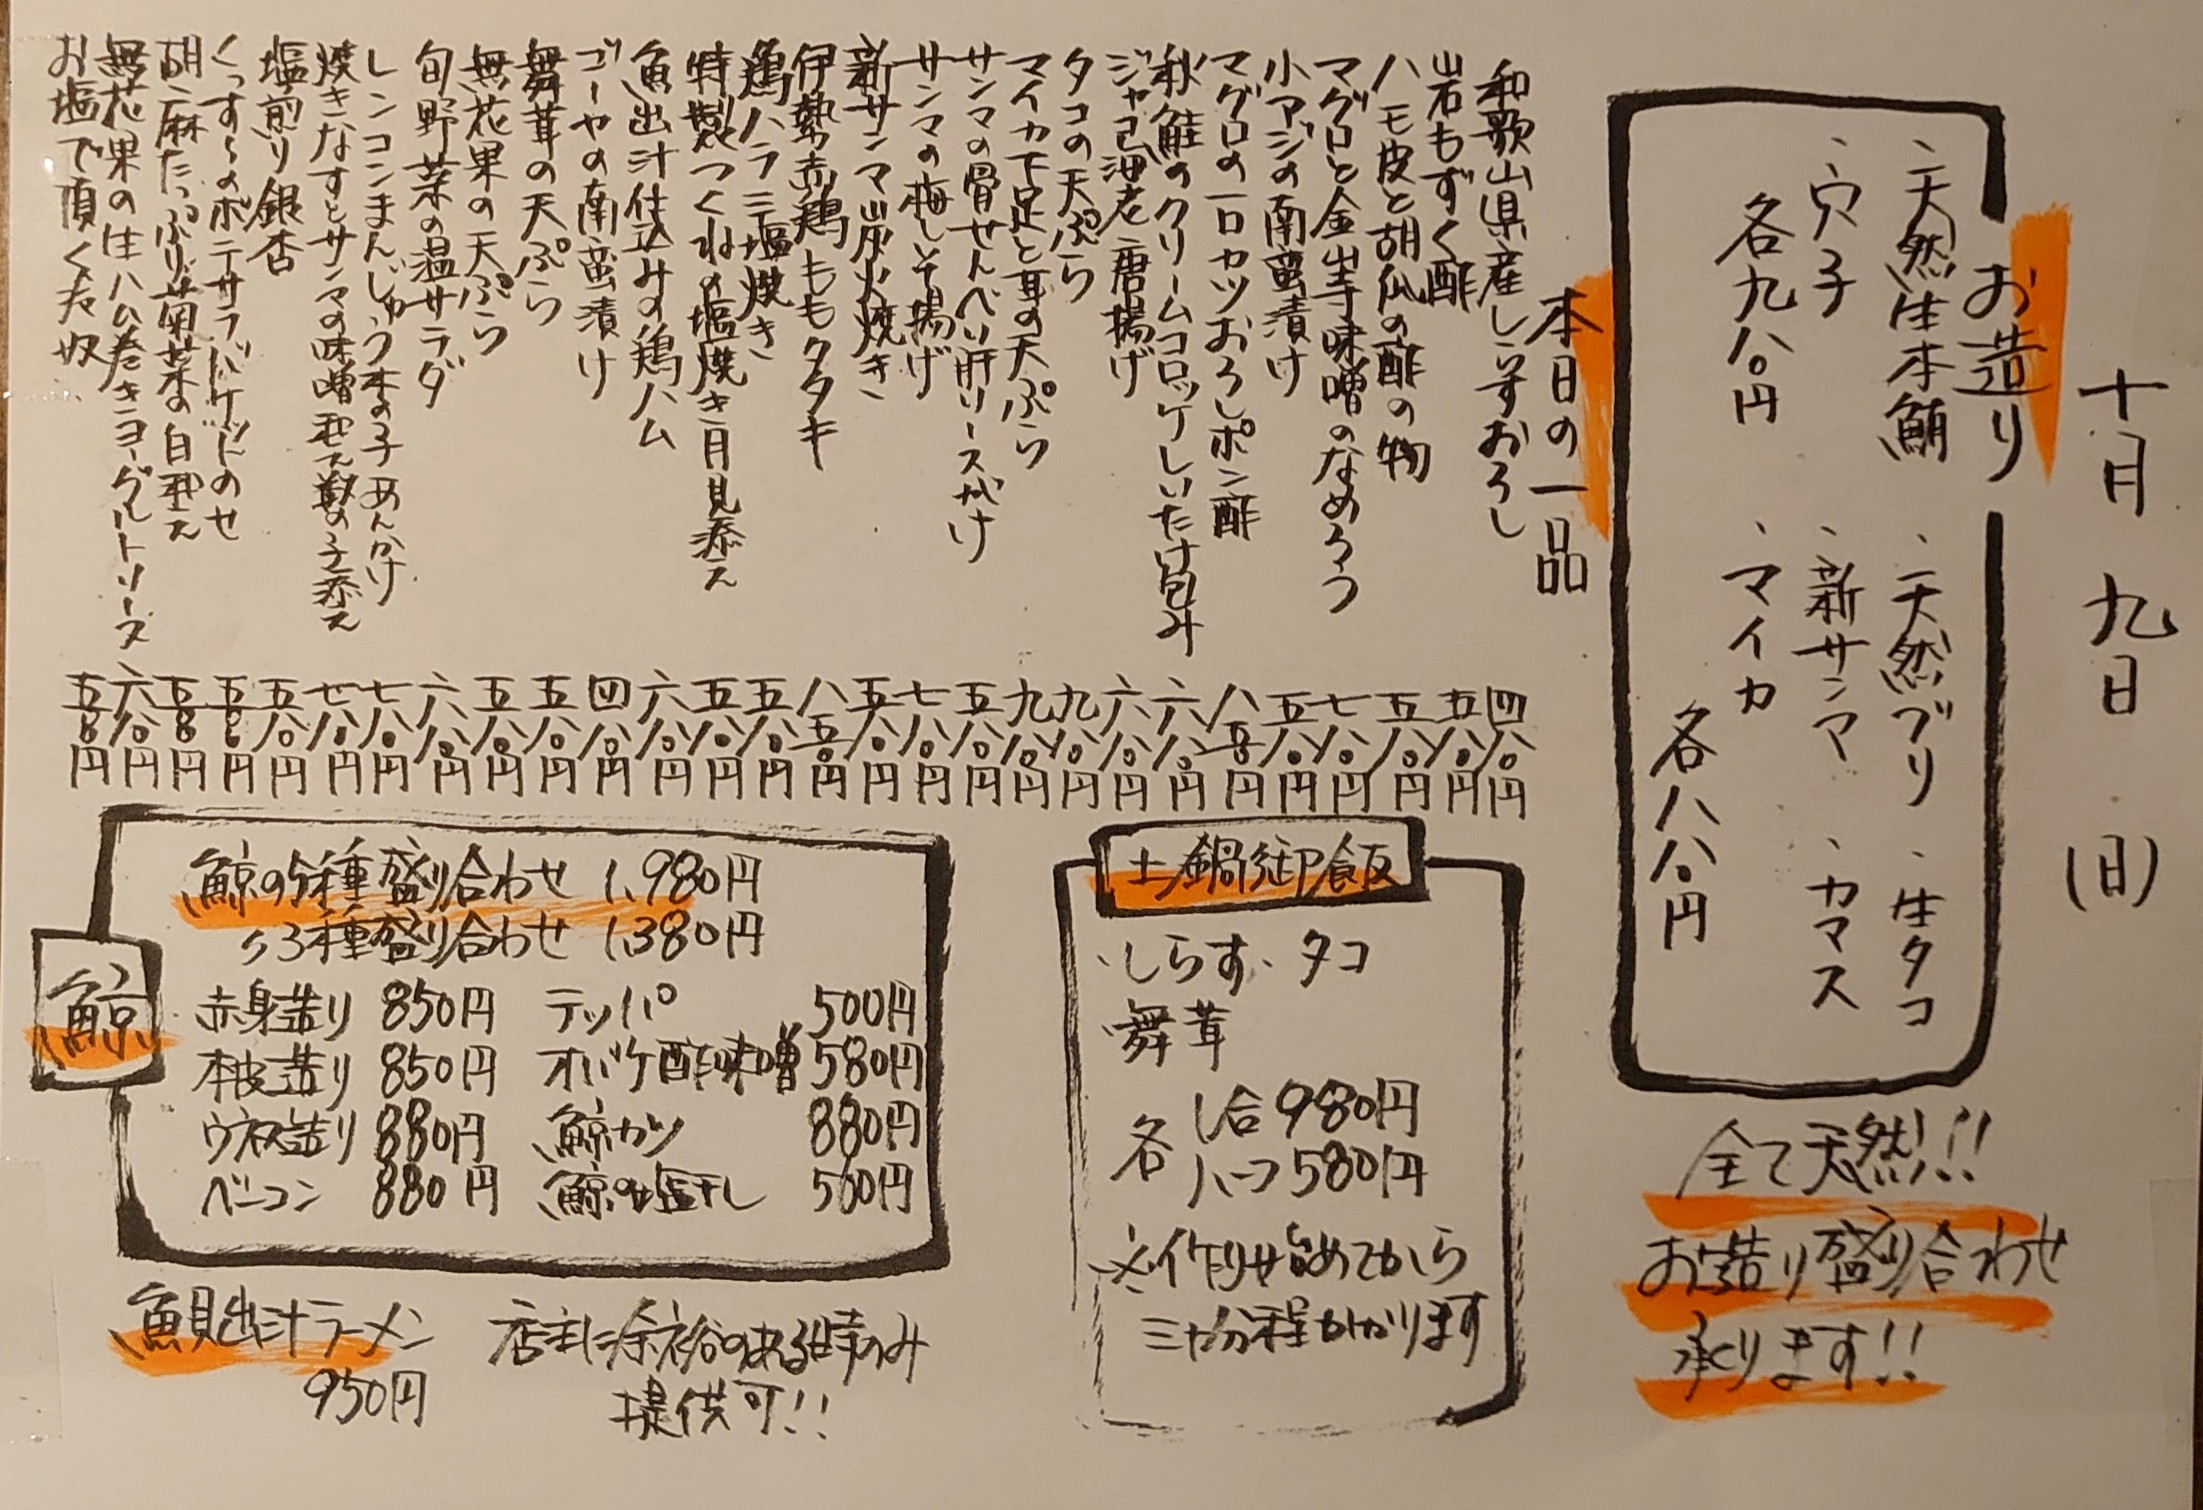 十月九日(日)
お造り
、天然生本鮪
、穴子
各九八〇円
、天然ブリ
、生タコ
、新サンマ
、カマス
、マイカ
各八八〇円
全て天然!!
お造り盛り合わせ
承ります!!
本日の一品
和歌山県産しらすおろし 四八〇円
岩もずく酢 五八〇円
ハモ皮と胡瓜の酢の物 五八〇円
マグロと金山寺味噌のなめろう 七八〇円
小アジの南蛮漬け 五八〇円
マグロの一口カツおろしポン酢 八五〇円
秋鮭のクリームコロッケしいたけ包み 六八〇円
ジャコ海老唐揚げ 六八〇円
タコの天ぷら 九八〇円
マイカ下足と耳の天ぷら 九八〇円
サンマの骨せんべい肝ソースがけ 五八〇円
サンマの梅しそ揚げ 七八〇円
新サンマ炭火焼き 五八〇円
伊勢赤鶏ももタタキ 八五〇円
鶏ハラミ塩焼き 五八〇円
特製つくねの塩焼き月見添え 五八〇円
魚出汁仕込みの鶏ハム 六八〇円
ゴーヤの南蛮漬け 四八〇円
舞茸の天ぷら 五八〇円
無花果の天ぷら 五八〇円
旬野菜の温サラダ 六八〇円
レンコンまんじゅう本の子あんかけ 七八〇円
焼きなすとサンマの味噌和え数の子添え 七八〇円
塩煎り銀杏 五八〇円
くっすぅのポテサラバケットのせ 五五〇円
胡麻たっぷり菊菜の白和え 五五〇円
無花果の生ハム巻きヨーグルトソース 六八〇円
お塩で頂く冷奴 五五〇円
土鍋御飯
・しらす・タコ
・舞茸
各 1合980円
ハーフ580円
※作り始めてから
三十分程かかります
鯨
鯨の5種盛り合わせ 1,980円
〃3種盛り合わせ 1,380円
赤身造り 850円 テッパ 500円
本皮造り 850円 オバケ酢味噌 580円
ウネス造り 880円 鯨カツ 880円
ベーコン 880円 鯨の塩干し 500円
魚貝出汁ラーメン
950円
店主に余裕のある時のみ
提供可!!